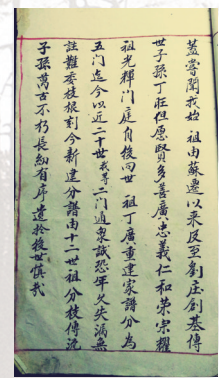 蓋嘗聞我始祖由蘇遷以来及至劉庄創基傳
世子孫丁旺但愿賢多善廣忠義仁和荣宗耀
祖光輝门庭自後四世祖丁廣重建家譜分為
五门迄今以近二十世我等二门道泉誠恐年久失漏無
註難委枝根刻今新建分譜由十二世祖分枝傳流
子孫萬古不朽長幼有序遺於後世慎哉